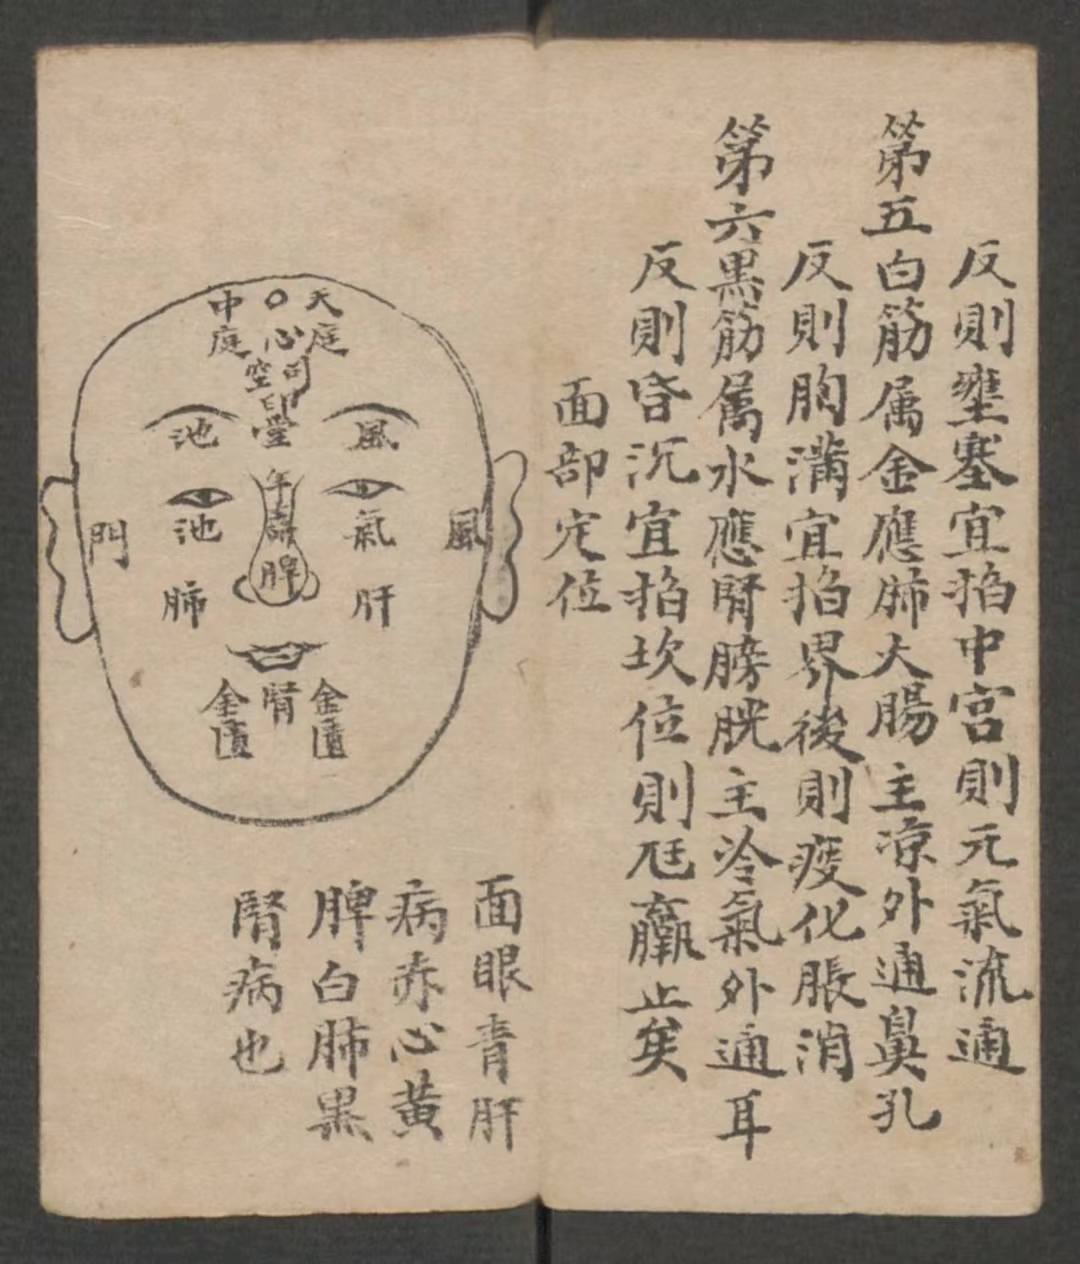 反則壅塞宜掐中宮則元氣流通
第五白筋属金應肺大腸主凉外通鼻孔
反則胸滿宜掐界後則痰化脹消
第六黑筋属水應腎膀胱主冷氣外通耳
反則昏沉宜掐坎位則尫羸止矣
面部定位
天庭
心
中庭
司空
印堂
風
池
年壽
氣
池
風
門
脾
肝
肺
金匱
腎
金匱
面眼青肝
病赤心黃
脾白肺黑
腎病也